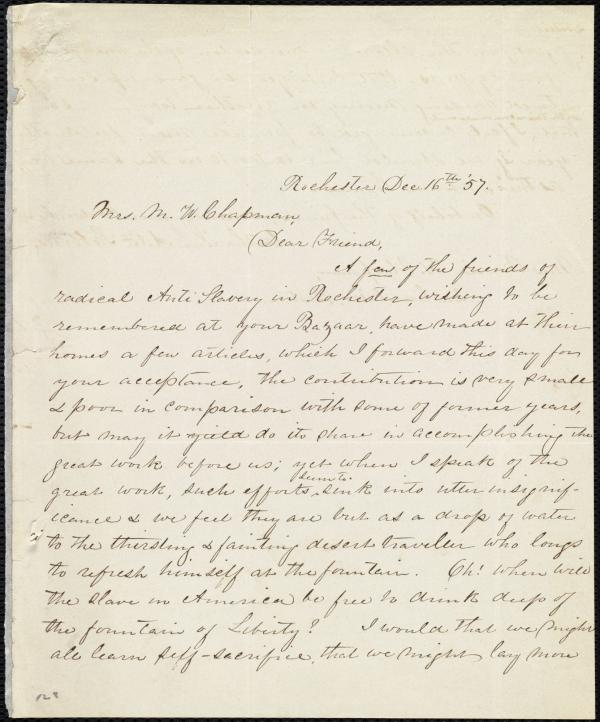 Rochester Dec 16th '57.
Mrs. M. W. Chapman,
Dear Friend,
A few of the friends of
radical Anti Slavery in Rochester, wishing to be
remembered at your Bazaar, have made at their
homes a few articles, which I forward this day for
your acceptance, the contribution is very small
& poor in comparison with some of former years,
but may it yield do its share in accomplishing the
great work before us; yet when I speak of the
great work, such efforts seem to sink into utter insignif-
icance & we feel they are but as a drop of water
to the thirsting & fainting desert traveller who longs
to refresh himself at the fountain. Oh! when will
the slave in America be free to drink deep of
the fountain of Liberty? I would that we might
all learn self-sacrifice, that we might lay more